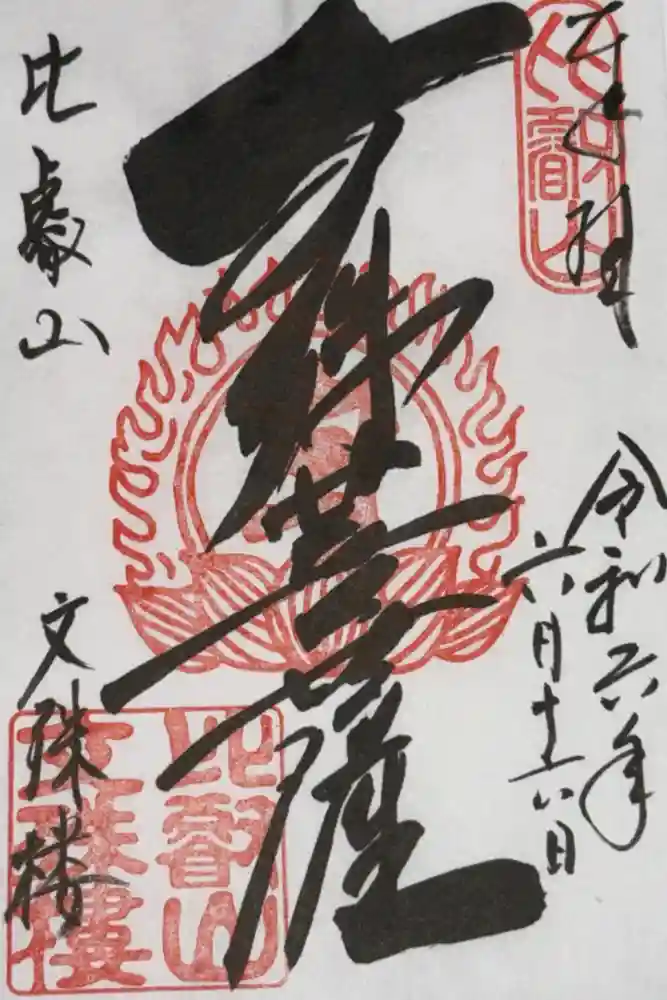 奉拝
比叡山
令和六年
六月十六日
文殊菩薩
比叡山
文殊楼
比叡山
文殊樓